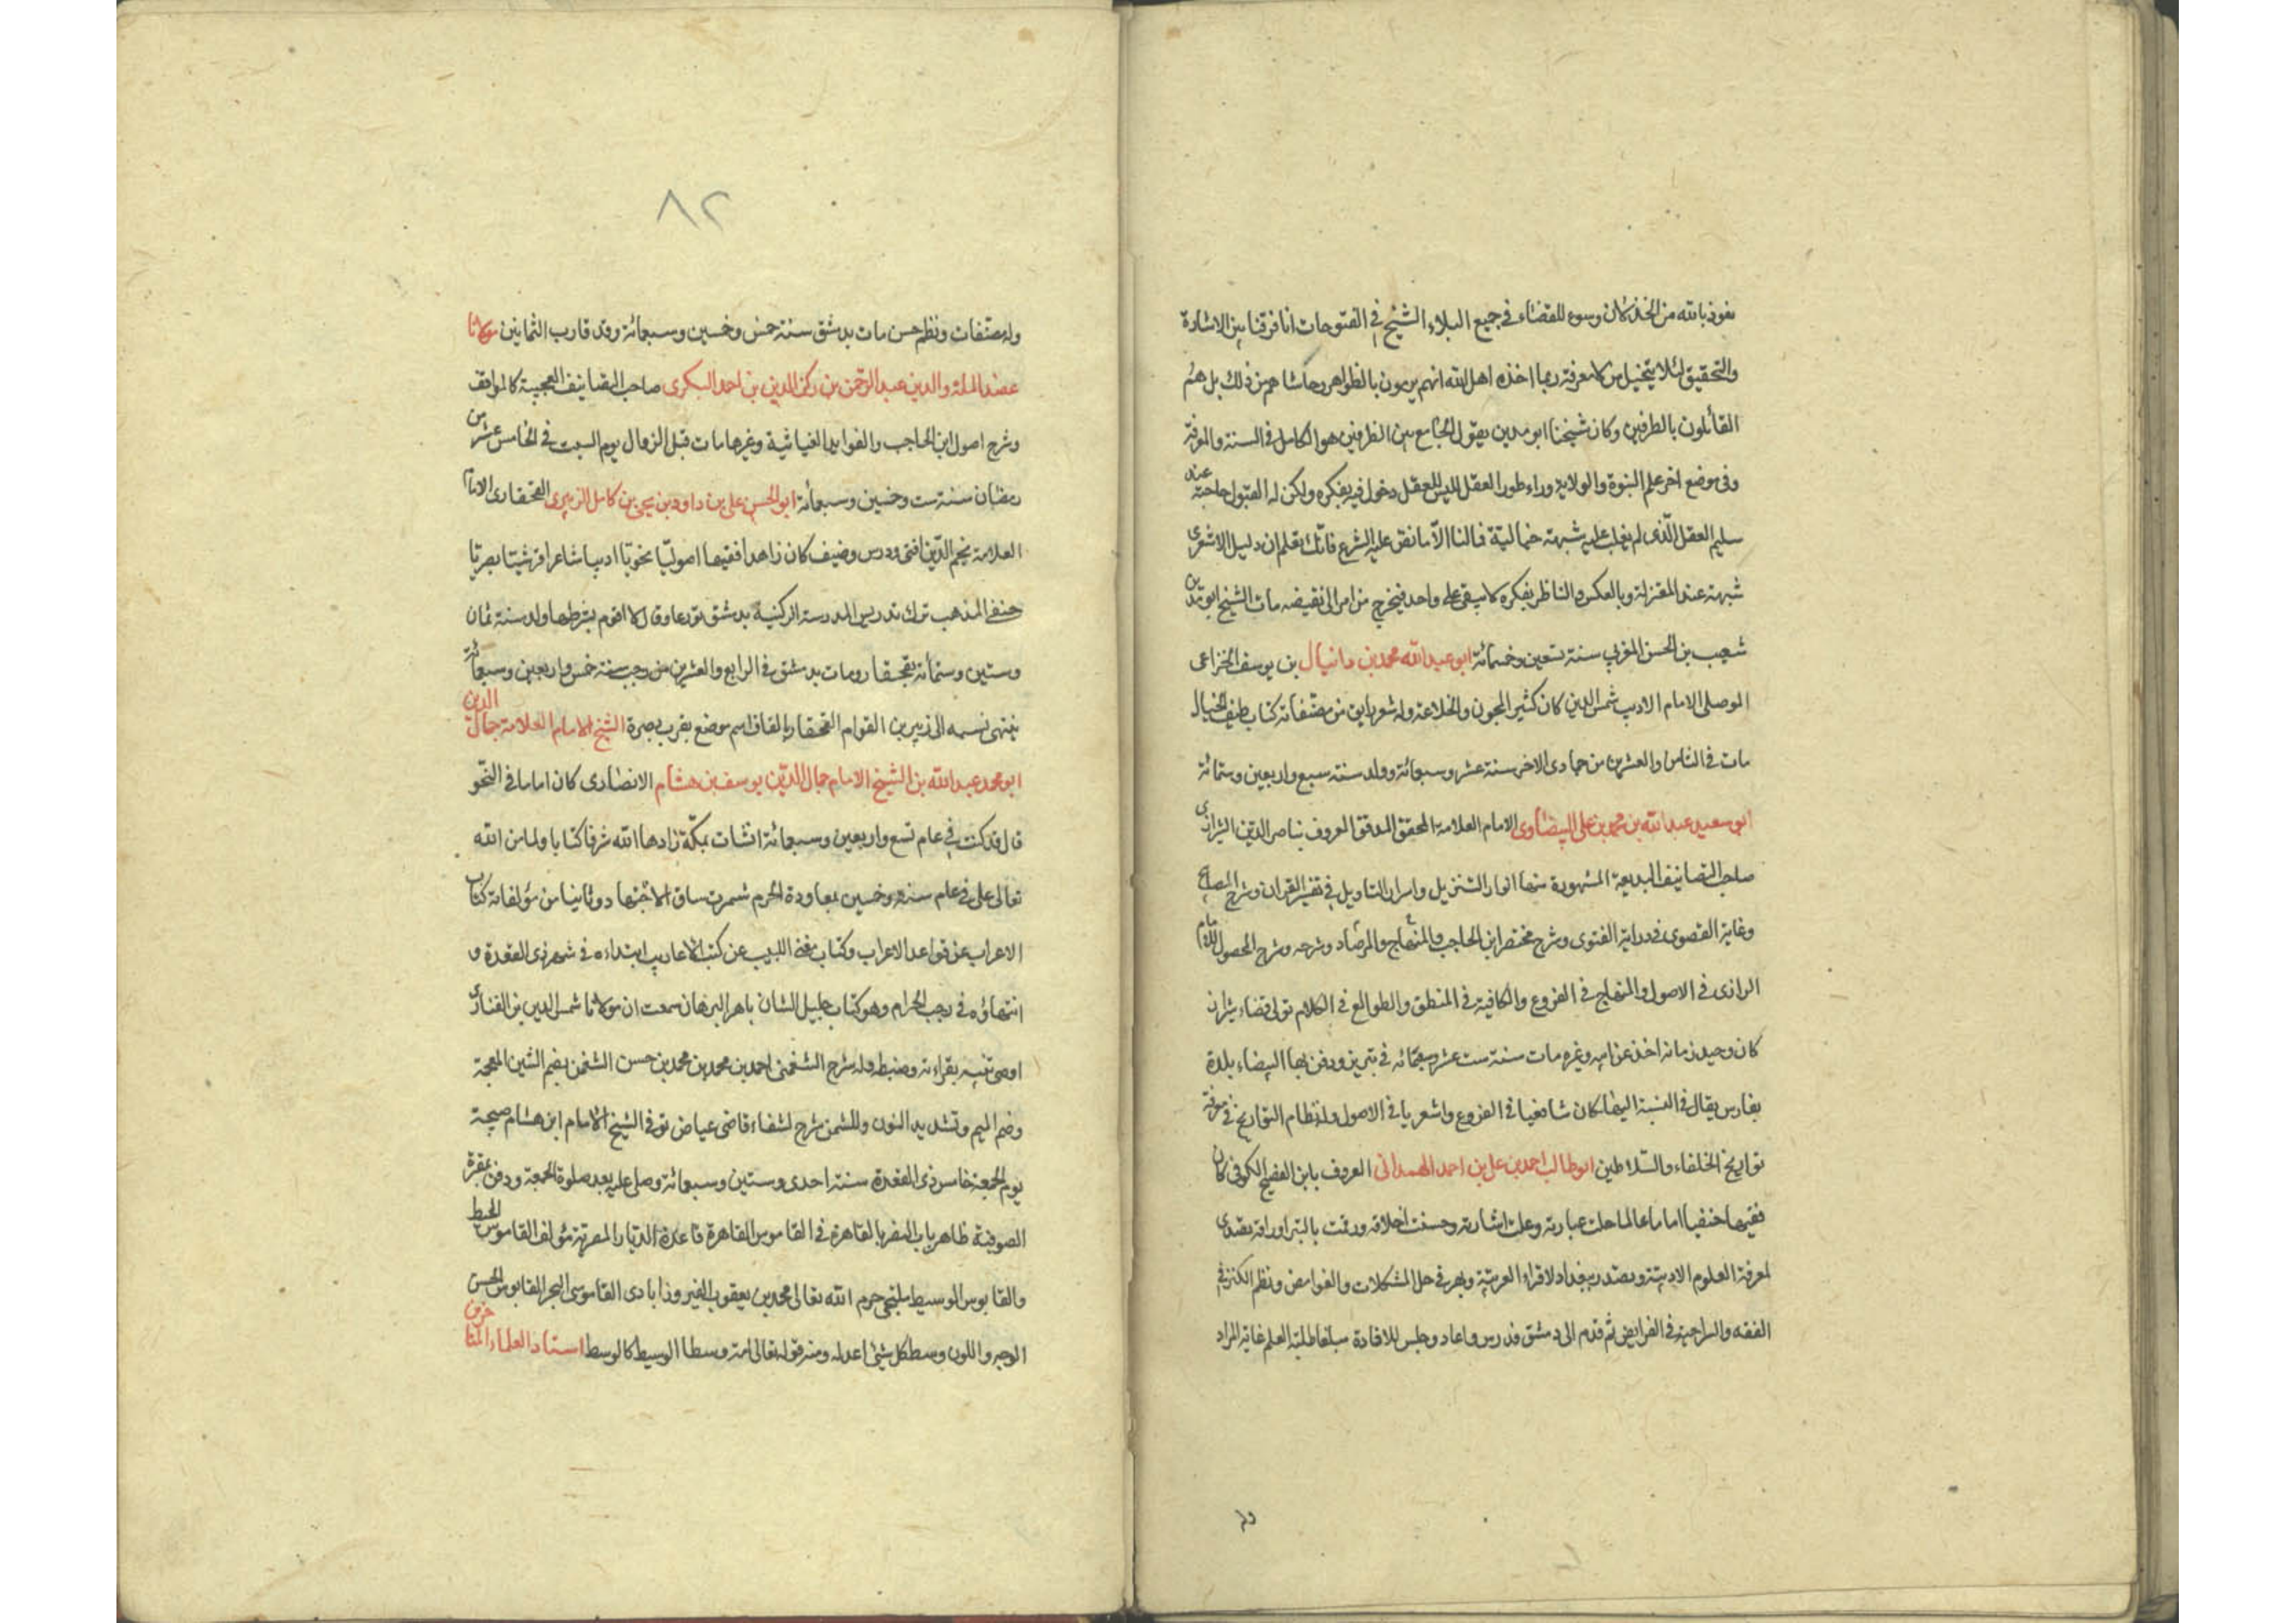 نعوذ بالله من الخذلان وسوء القضاء في جميع البلاء الشيخ في الفتوحات انا فرقنا بين الاشارة
والتحقيق لئلا يتخيل من لا معرفة بما اخذه اهل الله انهم يرمون بالظواهر وحاشاهم من ذلك بل هم
القائلون بالطرفين وكان شيخنا ابو مدين يقول الجامع بين الطرفين هو الكامل في السنة والمعرفة
وفي موضع اخر علم النبوة والولاية وراء طور العقل ليس للعقل دخول فيه بفكره ولكن له القبول خاصة عند
سليم العقل الذي لم يغلب عليه شبهة خيالية فالنا الا ما نص عليه الشرع فانك تعلم ان دليل الاشعري
شبهة عند المعتزلة وبالعكس والناظر بفكره لا يبقى على واحد فيخرج من امر الى نقيضه مات الشيخ ابو مدين
شعيب بن الحسن المغربي سنة تسعين وخمسمائة ابو عبد الله محمد بن دانيال بن يوسف الخزاعى
الموصلى الامام الاديب شمس الدين كان كثير المجون والخلاعة وله شعر رايق من مصنفاته كتاب طيف الخيال
مات في الثامن والعشرين من جمادى الاخر سنة عشر وسبعمائة وولد سنة سبع واربعين وستمائة
ابو سعيد عبد الله بن محمد بن على البيضاوى الامام العلامة المحقق المدقق المعروف بناصر الدين الشيرازى
صاحب التصانيف البديعة المشهورة منها انوار التنزيل واسرار التاويل في تفسير القران وشرح المصابيح
وغاية القصوى في دراية الفتوى وشرح مختصر ابن الحاجب والمنهاج والمرصاد وشرحه وشرح المحصول للامام
الرازى في الاصول والمنهاج في الفروع والكافية في المنطق والطوالع في الكلام تولى قضاء شيراز
كان وحيد زمانه اخذ عن ابيه وغيره مات سنة ست عشر وسبعمائه في تبريز ودفن بها البيضاء بلدة
بفارس يقال في النسبة اليها كان شافعيا في الفروع واشعريا في الاصول وله نظام التواريخ في معرفة
تواريخ الخلفاء والسلاطين ابو طالب احمد بن على بن احمد الهمدانى المعروف بابن الفصيح الكوفى كان
فقيها حنفيا اماما عالما حلت عبارته وعلت اشارته وحسنت اخلاقه ورقت بالتبر اوراقه تصدى
لمعرفة العلوم الادبية وتصدر ببغداد لاقراء العربية وبهر في حل المشكلات والغوامض ونظم الكنز في
الفقه والسراجية في الفرايض ثم قدم الى دمشق فدرس واعاد وجلس للافادة مبلغا طلبة العلم غاية المراد
وله
٨٢
وله مصنفات ونظم حسن مات بدمشق سنة خمس وخمسين وسبعمائة وقد قارب الثمانين مولانا
عضد الملة والدين عبد الرحمن بن ركن الدين بن احمد البكرى صاحب التصانيف العجيبة كالمواقف
وشرح اصول ابن الحاجب والفوايد الغياثية وغيرها مات قبل الزوال يوم السبت في الخامس عشر من
رمضان سنة ست وخمسين وسبعمائة ابو الحسن على بن داود بن يحيى بن كامل الزبيرى القحفازى الامام
العلامة نجم الدين افتى ودرس وضيف كان زاهدا فقيها اصوليا نحويا اديبا شاعرا قرشيا بصريا
حنفى المذهب ترك تدريس المدرسة الركنية بدمشق تورعا وقال لا اقوم بشرطها ولد سنة ثمان
وستين وستمأنة بقحفا ومات بدمشق في الرابع والعشرين من رجب سنة خمس واربعين وسبعمائة
ينتهى نسبه الى زبير بن العوام القحفا بالقاف اسم موضع بقرب بصرة الشيخ الامام العلامة جمال الدين
ابو محمد عبد الله بن الشيخ الامام جمال الدين يوسف بن هشام الانصارى كان اماما في النحو
قال قد كنت في عام تسع واربعين وسبعمائة انشات بمكة زادها الله شرفا كتابا ولما من الله
تعالى على في عام ستة وخمسين بمعاودة الحرم شمرت ساق الاجتهاد وثانيا من مؤلفاته كتاب
الاعراب عن قواعد الاعراب وكتاب مغنى اللبيب عن كتب الاعاريب ابتداءه في شهر ذى القعدة و
انتهاؤه في رجب الحرام وهو كتاب جليل الشان باهر البرهان سمعت ان مولانا شمس الدين بن الفنارى
اوصى بنيه بقراءته وضبطه وله شرح الشمنى احمد بن محمد بن محمد بن حسن الشمنى بضم الشين المعجمة
وضم الميم وتشديد النون وللشمنى شرح لشفاء قاضى عياض توفى الشيخ الامام ابن هشام صبيحة
يوم الجمعة خامس ذى القعدة سنة احدى وستين وسبعمائة وصلى عليه بعد صلوة الجمعة ودفن بمقبرة
الصوفية ظاهر باب النصر بالقاهرة في القاموس القاهرة قاعدة الديار المصرية مؤلف القاموس المحيط
والقابوس الوسيط ملتجى حرم الله تعالى محمد بن يعقوب الفيروزابادى القاموس البحر القابوس الحسن
الوجه واللون وسط كل شئ اعدله ومنه قوله تعالى امة وسطا الوسيط كالوسط استاد العلماء المتاخرين